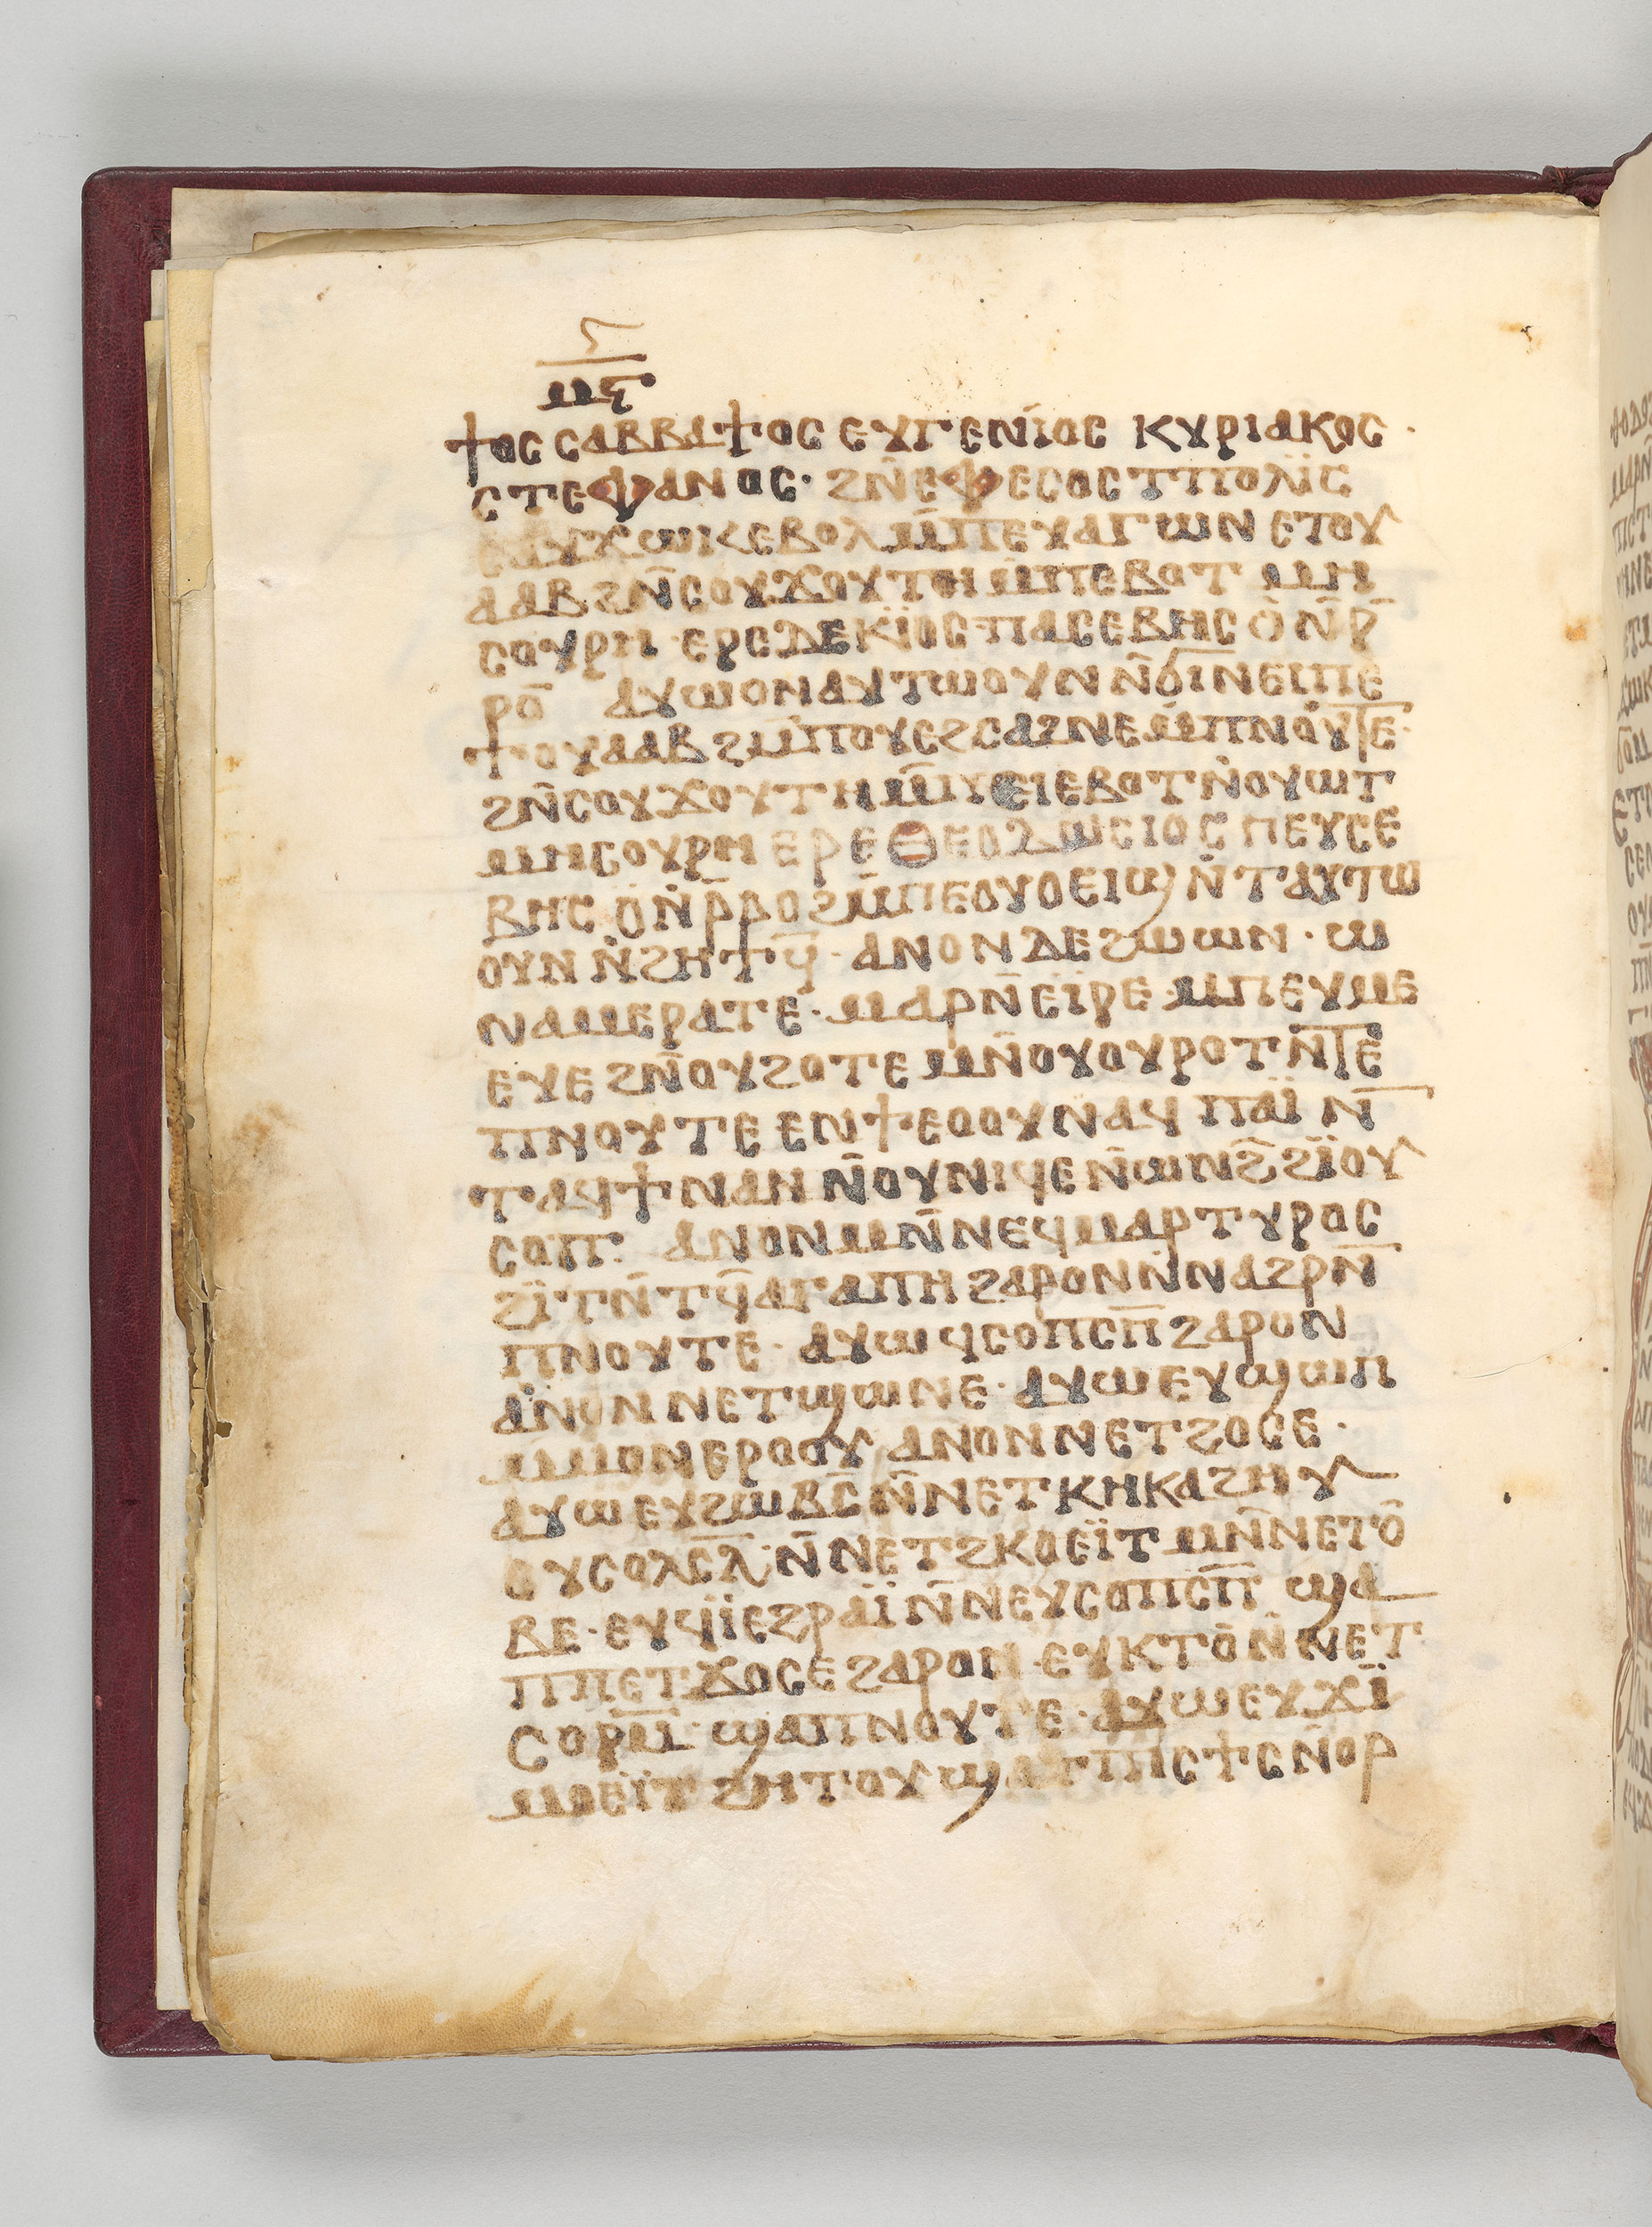 ⲙ̅ⲋ̅
ϯⲟⲥ ⲥⲁⲃⲃⲁϯⲟⲥ ⲉⲩⲅⲉⲛⲓⲟⲥ ⲕⲩⲣⲓⲁⲕⲟⲥ ·
ⲥⲧⲉⲫⲁⲛⲟⲥ · ϩⲛ̅ⲉⲫⲉⲥⲟⲥ ⲧⲡⲟⲗⲓⲥ
ⲉⲁⲩϫⲱⲕ ⲉⲃⲟⲗ ⲙ̅ⲡⲉⲩⲁⲅⲱⲛ ⲉⲧⲟⲩ
ⲁⲁⲃ ϩⲛ̅ⲥⲟⲩϫⲟⲩⲧⲏ ⲙ̅ⲡⲉⲃⲟⲧ ⲙⲏ
ⲥⲟⲩⲣⲏ · ⲉⲣⲉⲇⲉⲕⲓⲟⲥ ⲡⲁⲥⲉⲃⲏⲥ ⲟ̀ ⲛ̅ⲣ̅
ⲣⲟ̅ ⲁⲩⲱ ⲟⲛ ⲁⲩⲧⲱⲟⲩⲛ ⲛ̅ϭⲓ ⲛⲉⲓⲡⲉ
ϯⲟⲩⲁⲁⲃ ϩⲙ̅ⲡⲟⲩⲉϩⲥⲁϩⲛⲉ ⲙ̅ⲡⲛⲟⲩⲧⲉ ·
ϩⲛ̅ⲥⲟⲩϫⲟⲩⲧⲏ ⲙ̅ⲡⲉⲓⲉⲃⲟⲧ ⲛ̀ⲟⲩⲱⲧ
ⲙⲏⲥⲟⲩⲣⲏ ⲉⲣⲉⲑⲉⲟⲇⲱⲥⲓⲟⲥ ⲡⲉⲩⲥⲉ
ⲃⲏⲥ ⲟ̀ ⲛ̅ⲣ̅ⲣⲟ ϩⲙ̅ⲡⲉⲟⲩⲟⲉⲓϣ ⲛ̅ⲧⲁⲩⲧⲱ
ⲟⲩⲛ ⲛ̀ϩⲏⲧϥ̅ · ⲁⲛⲟⲛ ⲇⲉ ϩⲱⲱⲛ · ⲱ
ⲛⲁⲙⲉⲣⲁⲧⲉ · ⲙⲁⲣⲛ̅ⲉⲓⲣⲉ ⲙ̅ⲡⲉⲩⲙⲉ
ⲉⲩⲉ ϩⲛ̅ⲟⲩϩⲟⲧⲉ ⲙⲛ̅ⲟⲩⲟⲩⲣⲟⲧ ⲛ̅ⲧⲉ
ⲡⲛⲟⲩⲧⲉ ⲉⲛϯⲉⲟⲟⲩ ⲛⲁϥ ⲡⲁⲓ̈ ⲛ̅
ⲧⲁϥϯ ⲛⲁⲛ ⲛ̅ⲟⲩⲛⲓϥⲉ ⲛ̅ⲱⲛϩ̅ ϩⲓ̈ⲟⲩ
ⲥⲟⲡ · ⲁⲛⲟⲛ ⲙⲛ̅ⲛⲉϥⲙⲁⲣⲧⲩⲣⲟⲥ
ϩⲓ̈ⲧⲛ̅ⲧϥ̅ⲁⲅⲁⲡⲏ ϩⲁⲣⲟⲛ ⲛ̀ⲛⲁϩⲣⲛ̅
ⲡⲛⲟⲩⲧⲉ · ⲁⲩⲱ ϥⲥⲟⲡⲥⲡ̅ ϩⲁⲣⲟⲛ
ⲁⲛⲟⲛ ⲛⲉⲧϣⲱⲛⲉ · ⲁⲩⲱ ⲉⲩϣⲱⲡ
ⲙ̅ⲙⲟⲛ ⲉⲣⲟⲟⲩ ⲁⲛⲟⲛ ⲛⲉⲧϩⲟⲥⲉ ·
ⲁⲩⲱ ⲉⲩϩⲱⲃⲥ̅ ⲛ̅ⲛⲉⲧⲕⲏⲕⲁϩⲏⲩ
ⲉⲩⲥⲟⲗⲥⲗ̅ · ⲛ̅ⲛⲉⲧϩⲕⲟⲉⲓ̈ⲧ ⲙⲛ̅ⲛⲉⲧⲟ̅
ⲃⲉ · ⲉⲩϥⲓ̈ ⲉϩⲣⲁⲓ̈ ⲛ̅ⲛⲉⲩⲥⲟⲡⲥⲡ̅ ϣⲁ
ⲡⲡⲉⲧϫⲟⲥⲉ ϩⲁⲣⲟⲛ · ⲉⲩⲕⲧⲟ ⲛ̀ⲛⲉⲧ
ⲥⲟⲣⲙ̅ · ϣⲁⲡⲛⲟⲩⲧⲉ · ⲁⲩⲱ ⲉⲩϫⲓ̈
ⲙⲟⲉⲓ̈ⲧ ϩⲏⲧⲟⲩ ϣⲁⲧⲡⲓⲥϯⲥ ⲛ̅ⲟⲣ